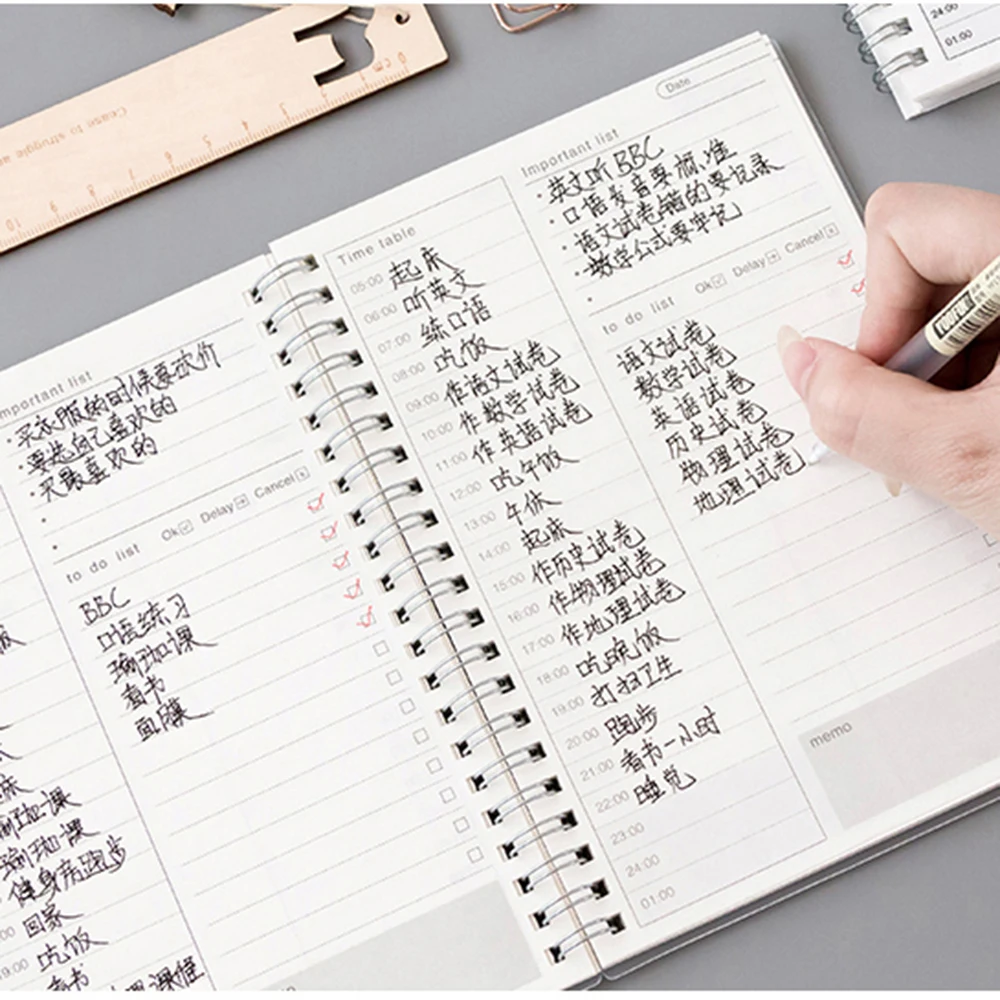 Cease to struggle
0cm 1 2 3 4 5 6 7 8 9 10
24:00
01:00
Important list
·买衣服的时候要试价
·要选自己喜欢的
·买最喜欢的
to do list Ok Delay Cancel
BBC
口语练习
瑜珈课
看书
面膜
瑜珈课
瑜珈课
健身房跑步
回家
19:00 吃饭
看书
Time table
05:00 起床
06:00 听英文
07:00 练口语
08:00 吃饭
09:00 作语文试卷
10:00 作数学试卷
11:00 作英语试卷
12:00 吃午饭
13:00 午休
14:00 起床
15:00 作历史试卷
16:00 作物理试卷
17:00 作地理试卷
18:00 吃晚饭
19:00 打扫卫生
20:00 跑步
21:00 看书一小时
22:00 睡觉
23:00
24:00
01:00
Date
Important list
·英文听BBC
·口语发音要标准
·语文试卷错的要记录
·数学公式要牢记
to do list Ok Delay Cancel
语文试卷
数学试卷
英语试卷
历史试卷
物理试卷
地理试卷
memo